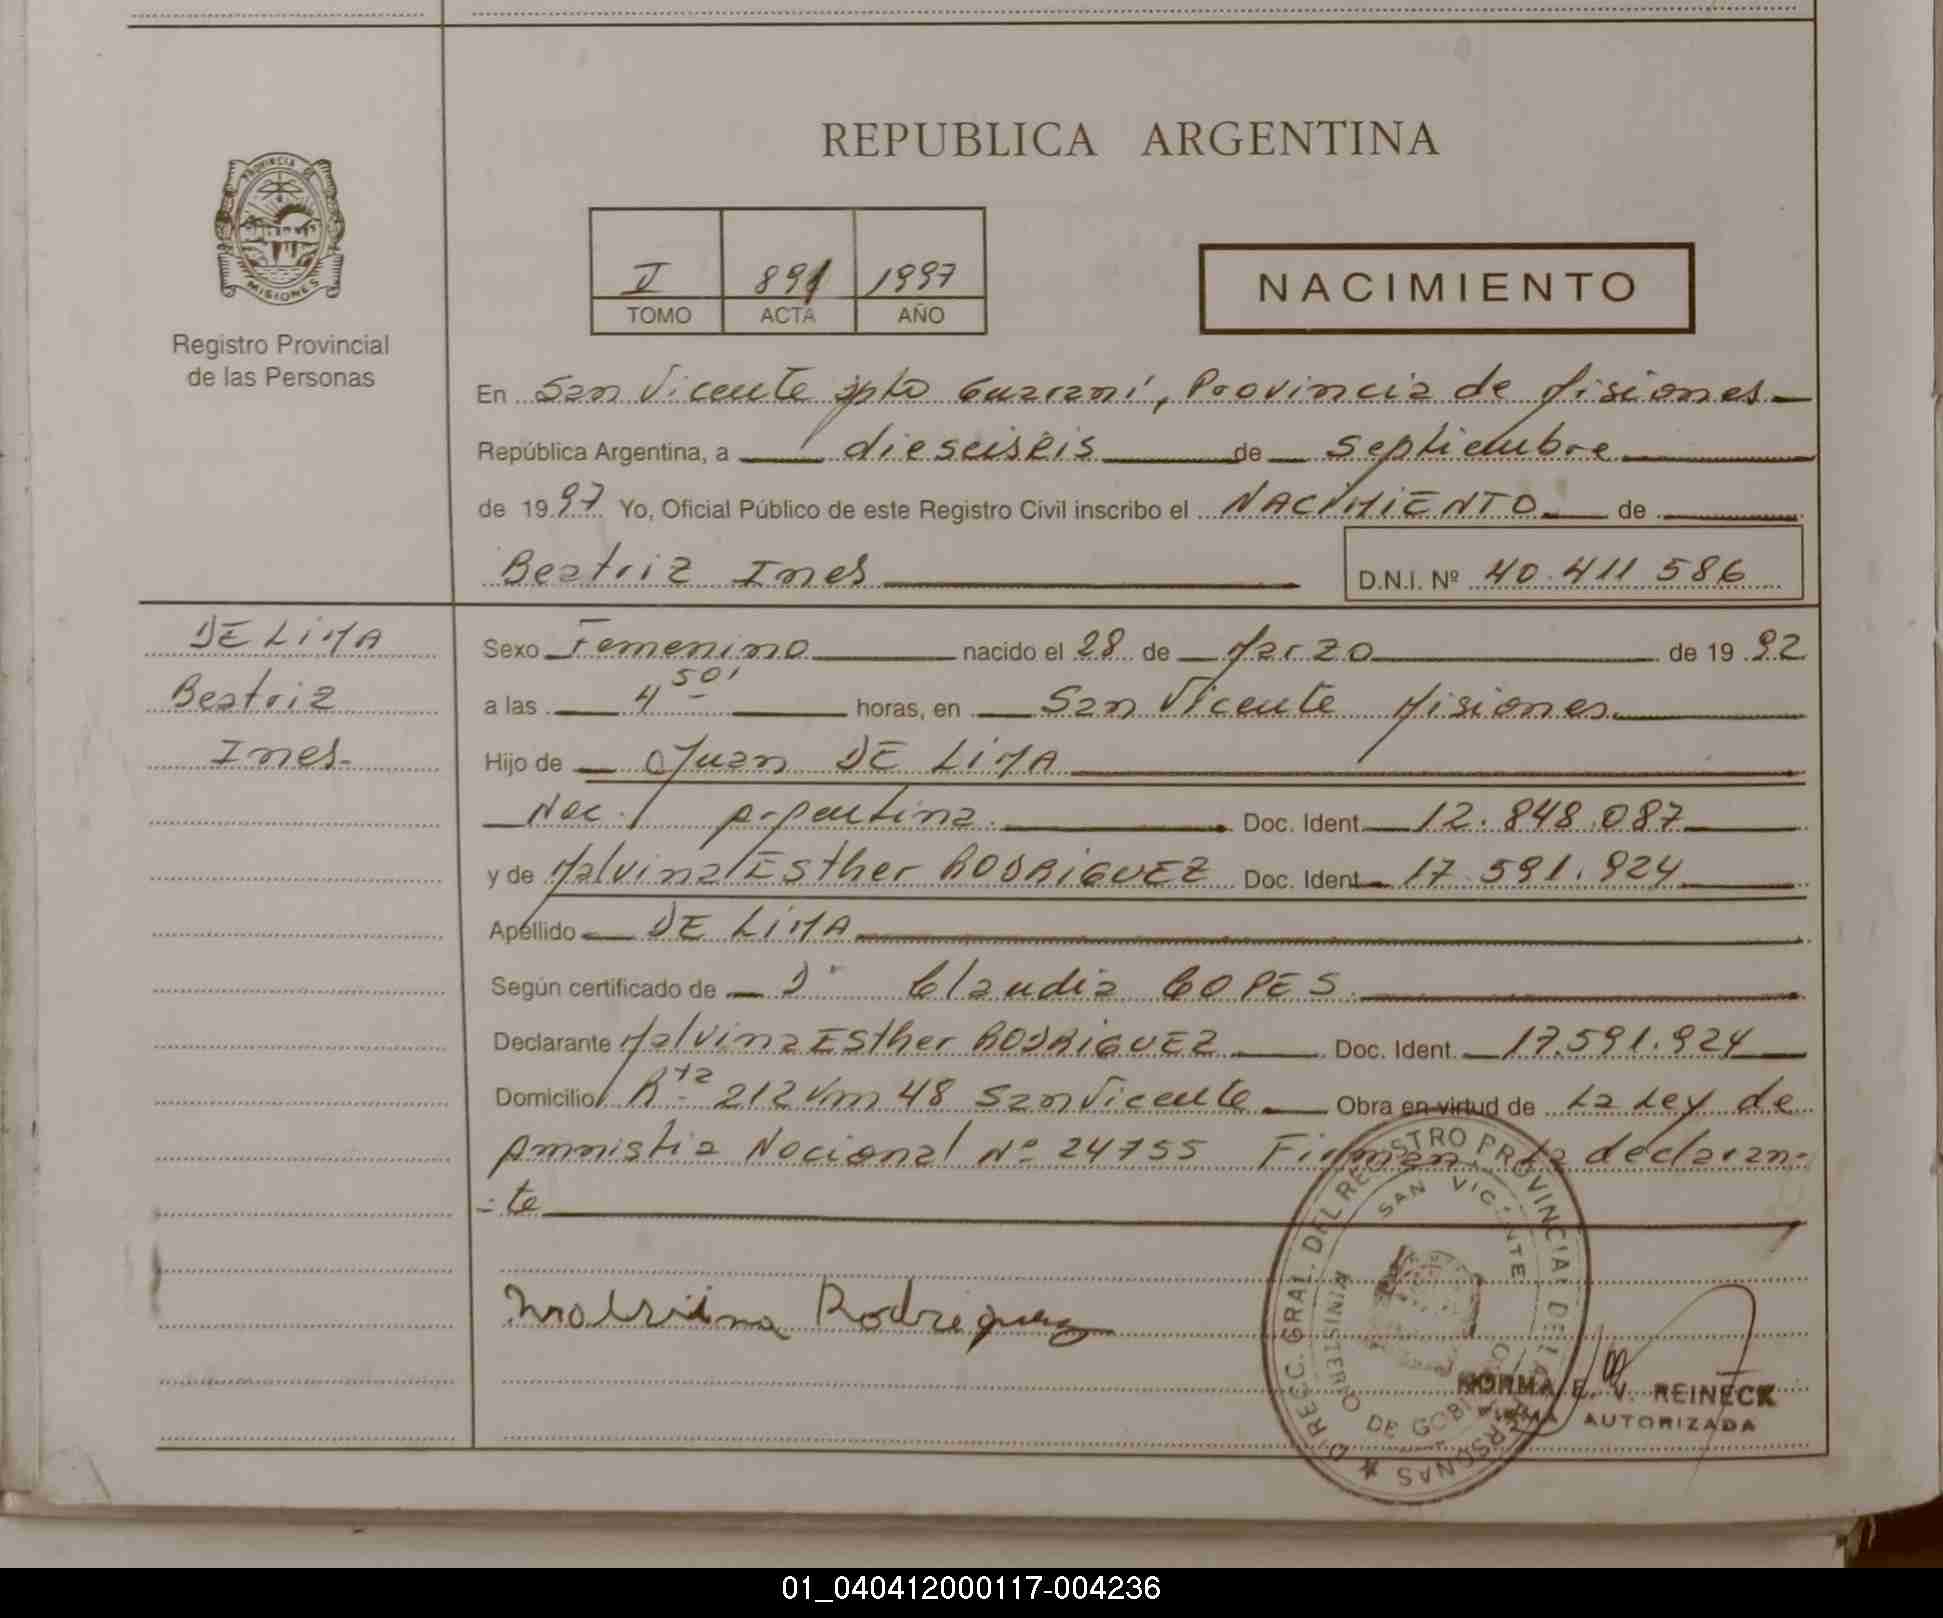 REPUBLICA ARGENTINA
PROVINCIA DE
MISIONES
Registro Provincial
de las Personas
V 891 1997
TOMO ACTA AÑO
NACIMIENTO
En San Vicente Dpto Guarani, Provincia de Misiones
República Argentina, a dieseiseis de Septiembre
de 1997 Yo, Oficial Público de este Registro Civil inscribo el NACIMIENTO de
Beatriz Ines D.N.I. Nº 40.411.586
DE LIMA
Beatriz
Ines
Sexo Femenino nacido el 28 de Marzo de 1992
a las 4 50' horas, en San Vicente Misiones
Hijo de Juan DE LIMA
Nac. Argentina Doc. Ident. 12.848.087
y de Malvina Esther RODRIGUEZ Doc. Ident. 17.591.924
Apellido DE LIMA
Según certificado de Claudia COPES
Declarante Malvina Esther RODRIGUEZ Doc. Ident. 17.591.924
Domicilio Rta 212 Km 48 San Vicente Obra en virtud de La Ley de
Amnistia Nacional Nº 24755 Firman la declaran-
-te
Malvina Rodriguez
DIRECC. GRAL. DEL REGISTRO PROVINCIAL DE LAS PERSONAS
SAN VICENTE
MINISTERIO DE GOBIERNO
NORMA E. V. REINECK
FIRMA AUTORIZADA
01_040412000117-004236